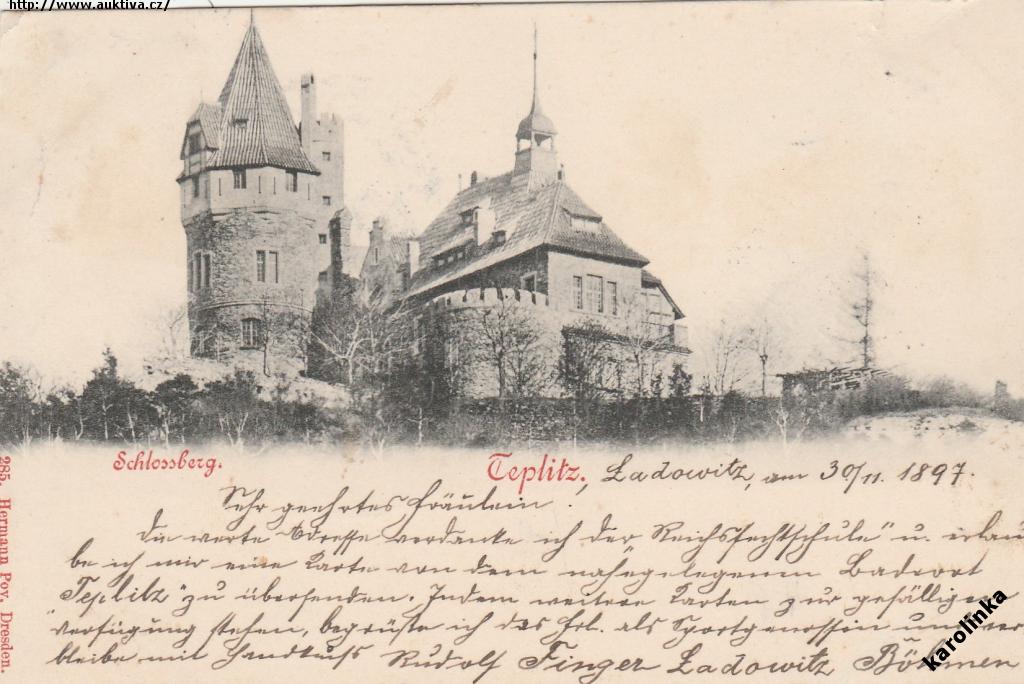 http://www.auktiva.cz/
Schlossberg.
Teplitz. Ladowitz, am 30/11. 1897.
Sehr geehrtes Fräulein!
Die werte Adresse verdanke ich der „Reichsfechtschule" u. erlau
be ich mir eine Karte von dem nahegelegenen Badeort
"Teplitz" zu übersenden. Indem weitere Karten zur gefälligen
Verfügung stehen, begrüße ich das Frl. als Sportgenossin und ver
bleibe mit Handkuß Rudolf Finger Ladowitz Böhmen
285. Hermann Poy, Dresden.
karolinka